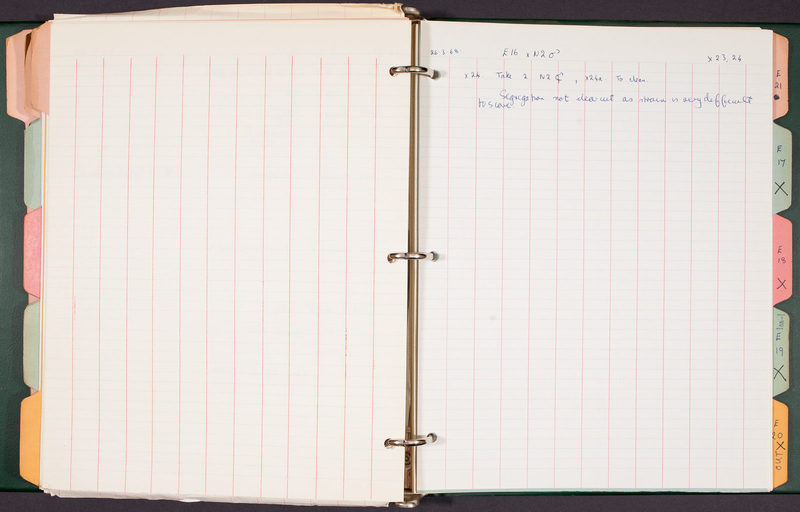 26.3.68. E16 x N2 ♂ x23, 24
x24. Take 2 N2 ⚥, x24a. To clean.
Segregation not clear cut as strain is very difficult
to score
E
21
E
17
X
E
18
X
E
19
X
E
20
X
OUT